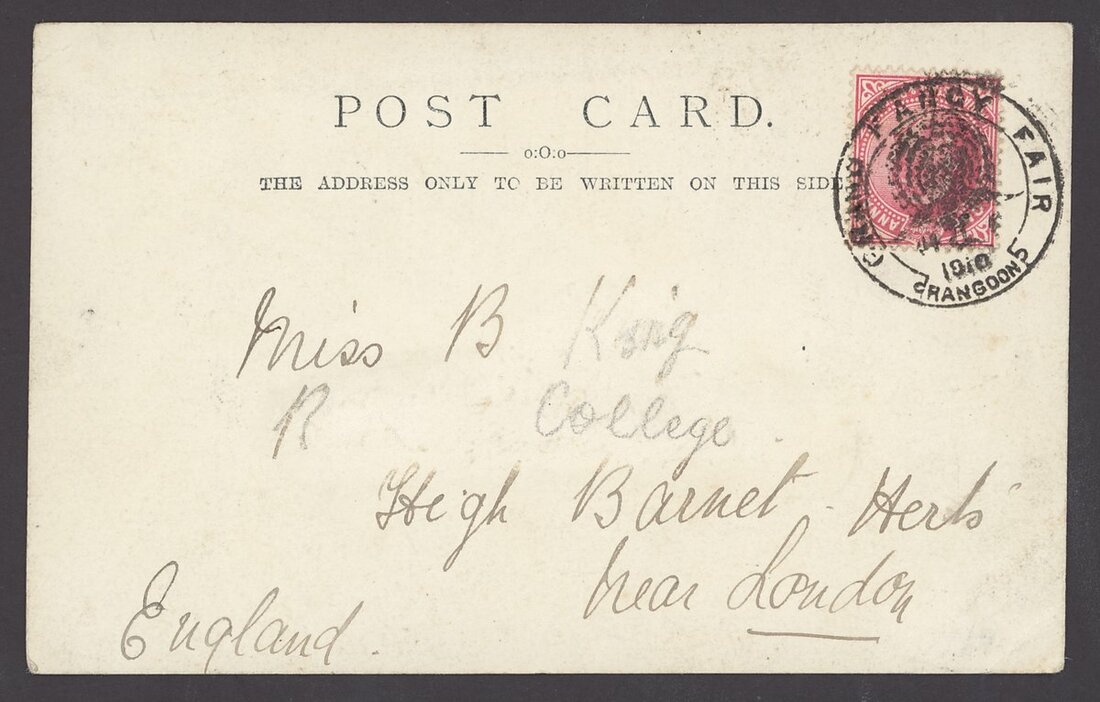 POST CARD.
o:O:o
THE ADDRESS ONLY TO BE WRITTEN ON THIS SIDE
GRAND FANCY FAIR
1910
RANGOON
Miss B King
R College.
High Barnet. Herts
near London
England.